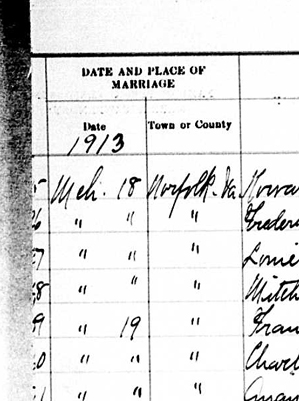 DATE AND PLACE OF
MARRIAGE
Date Town or County
1913
Mch. 18 Norfolk. Va.
6 " " " Frederi
7 " " " Louie
8 " " " Mitch
9 " 19 " Fran
0 " " " Charl
1 " " "